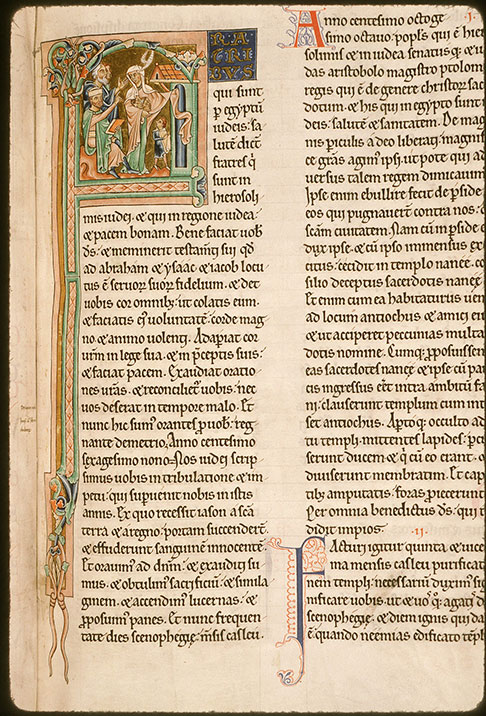 FRATRI
BVS
qui sunt
p̱ egyptū
iudeis: sa
lutē dic̄t
fratres q̇
sunt in
hierosoli
mis iudei. & qui in regione iudeę
& pacem bonam. Bene faciat uob̄
d̄s. & meminerit testam̄ti sui q̇d
ad abraham & ysaac & iacob locu
tus ē seruor̄ suor̄ fidelium. & det
uobis cor omnib;. ut colatis eum.
& faciatis ei' uoluntatē. corde mag
no & animo uolenti. Adaperiat cor
ur̄m in lege sua. & in p̄ceptis suis.
& faciat pacem. Exaudiat oratio
nes ur̄as. & reconcilie&' uobis. nec
uos deserat in tempore malo. Et
nunc hic sum' orantes p̱ uob'. reg
nante demetrio. Anno centesimo
sexagesimo nono. Nos iudei scrip
simus uobis in tribulatione & im
petu. qui sup̱uenit nobis in istis
annis. Ex quo recessit iason a sc̄a
terra & a regno. portam succendert̄.
& effuderunt sanguinē innocentē.
Et orauim' ad dn̄m. & exauditi su
mus. & obtulim' sacrificiū. & simila
ginem. & accendim' lucernas. &
p̱posuim' panes. Et nunc frequen
tate dies scenophegię. m̄sis casleu.
.I.
Anno centesimo octoge
simo octauo. popl's qui ē hier
solimis & in iudea senatusq;. & iu
das aristobolo magistro ptolom
regis qui ē de genere christor̄ sac
dotum. & his qui in egypto sunt
deis. salutē & sanitatem. De mag
nis p̱iculis a deo liberati. magnif
ce grās agim' ipsi. ut pote qui ad
uersus talem regem dimicauim
Ipse enim ebullire fecit de p̱side
eos qui pugnauer̄t contra nos.
sc̄am ciuitatem. Nam cū in p̱side
dux ipse. & cū ipso immensus ex
citus. cecidit in templo naneę. co
silio deceptus sacerdotis naneę
Et enim cum ea habitaturus uen
ad locum antiochus & amici ei
& ut acciperet pecunias multa
dotis nomine. Cumq; p̱posuissen
eas sacerdotes naneę. & ipse cū pa
cis ingressus ee͞t intra ambitū fa
ni. clauserunt templum cum int
set antiochus. Aptoq; occulto ad
tu templi. mittentes lapides. p̱c
serunt ducem & q̇ cū eo erant. &
diuiserunt membratim. Et cap
tib; amputatis. foras p̱iecerunt
Per omnia benedictus d̄s. qui t
didit impios.
.II.
Facturi igitur quinta & uice
ma mensis casleu purificat
nem templi. necessariū duxim' sig
nificare uobis. ut & uo' q̇q; agatis d
scenophegię. & diem ignis qui da
ē. quando neemias edificato tēpl